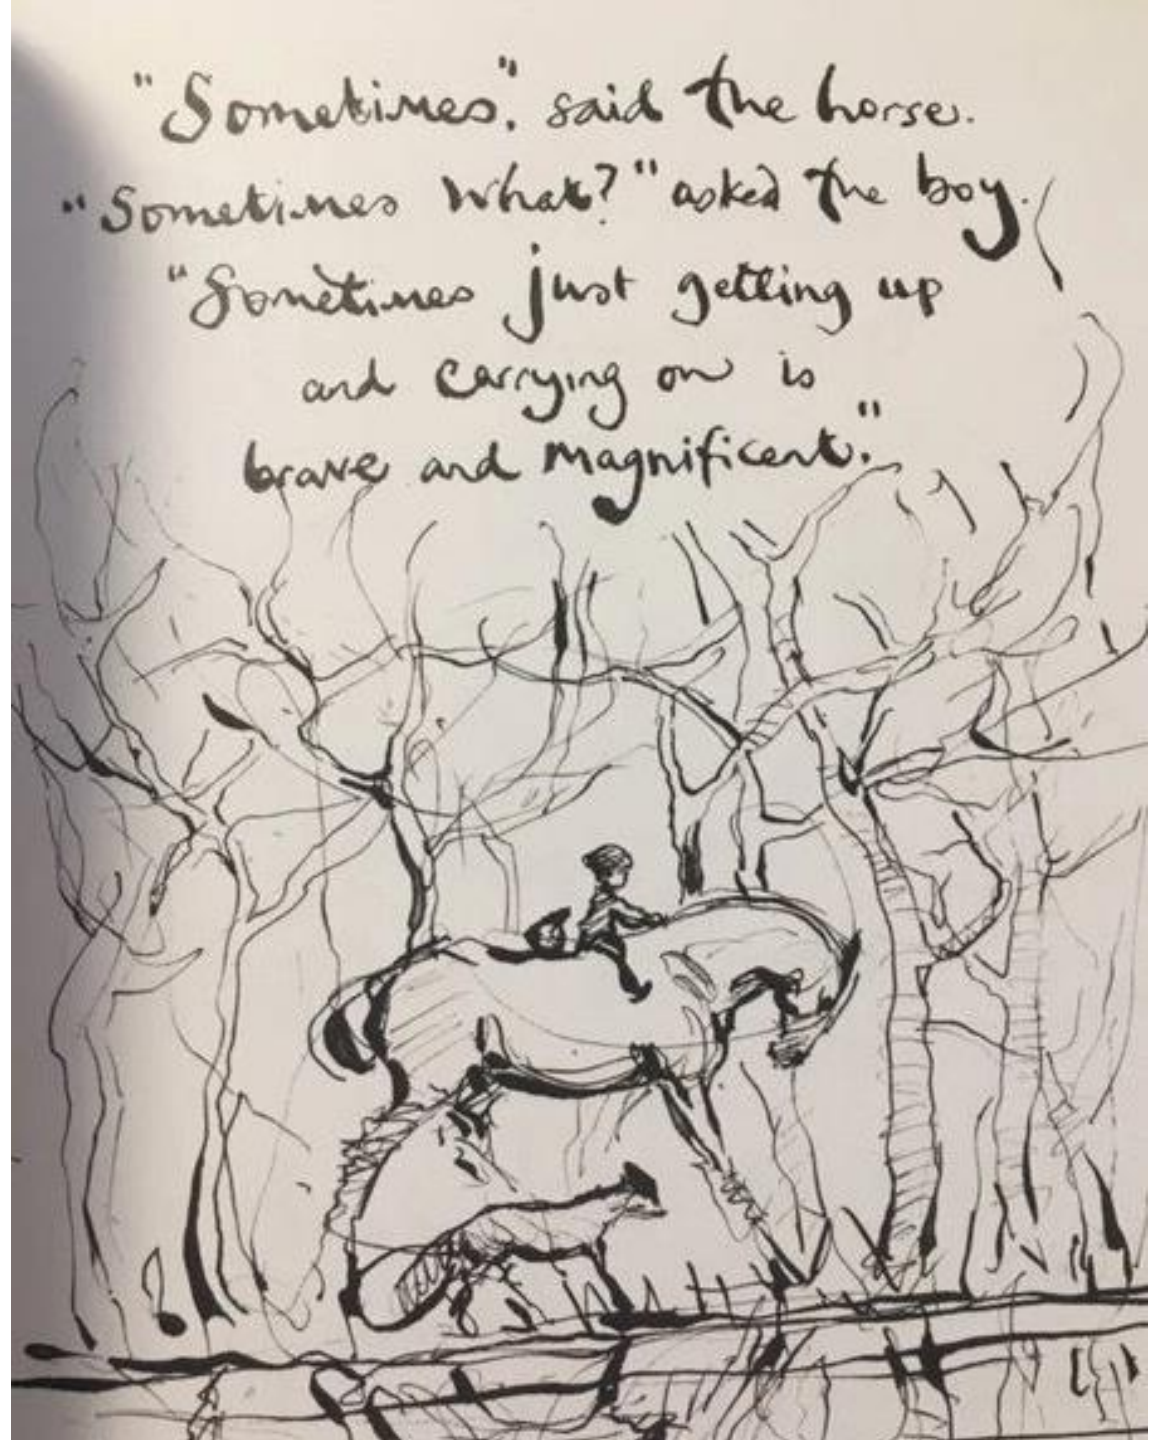 "Sometimes," said the horse.
"Sometimes what?" asked the boy.
"Sometimes just getting up
and carrying on is
brave and magnificent."